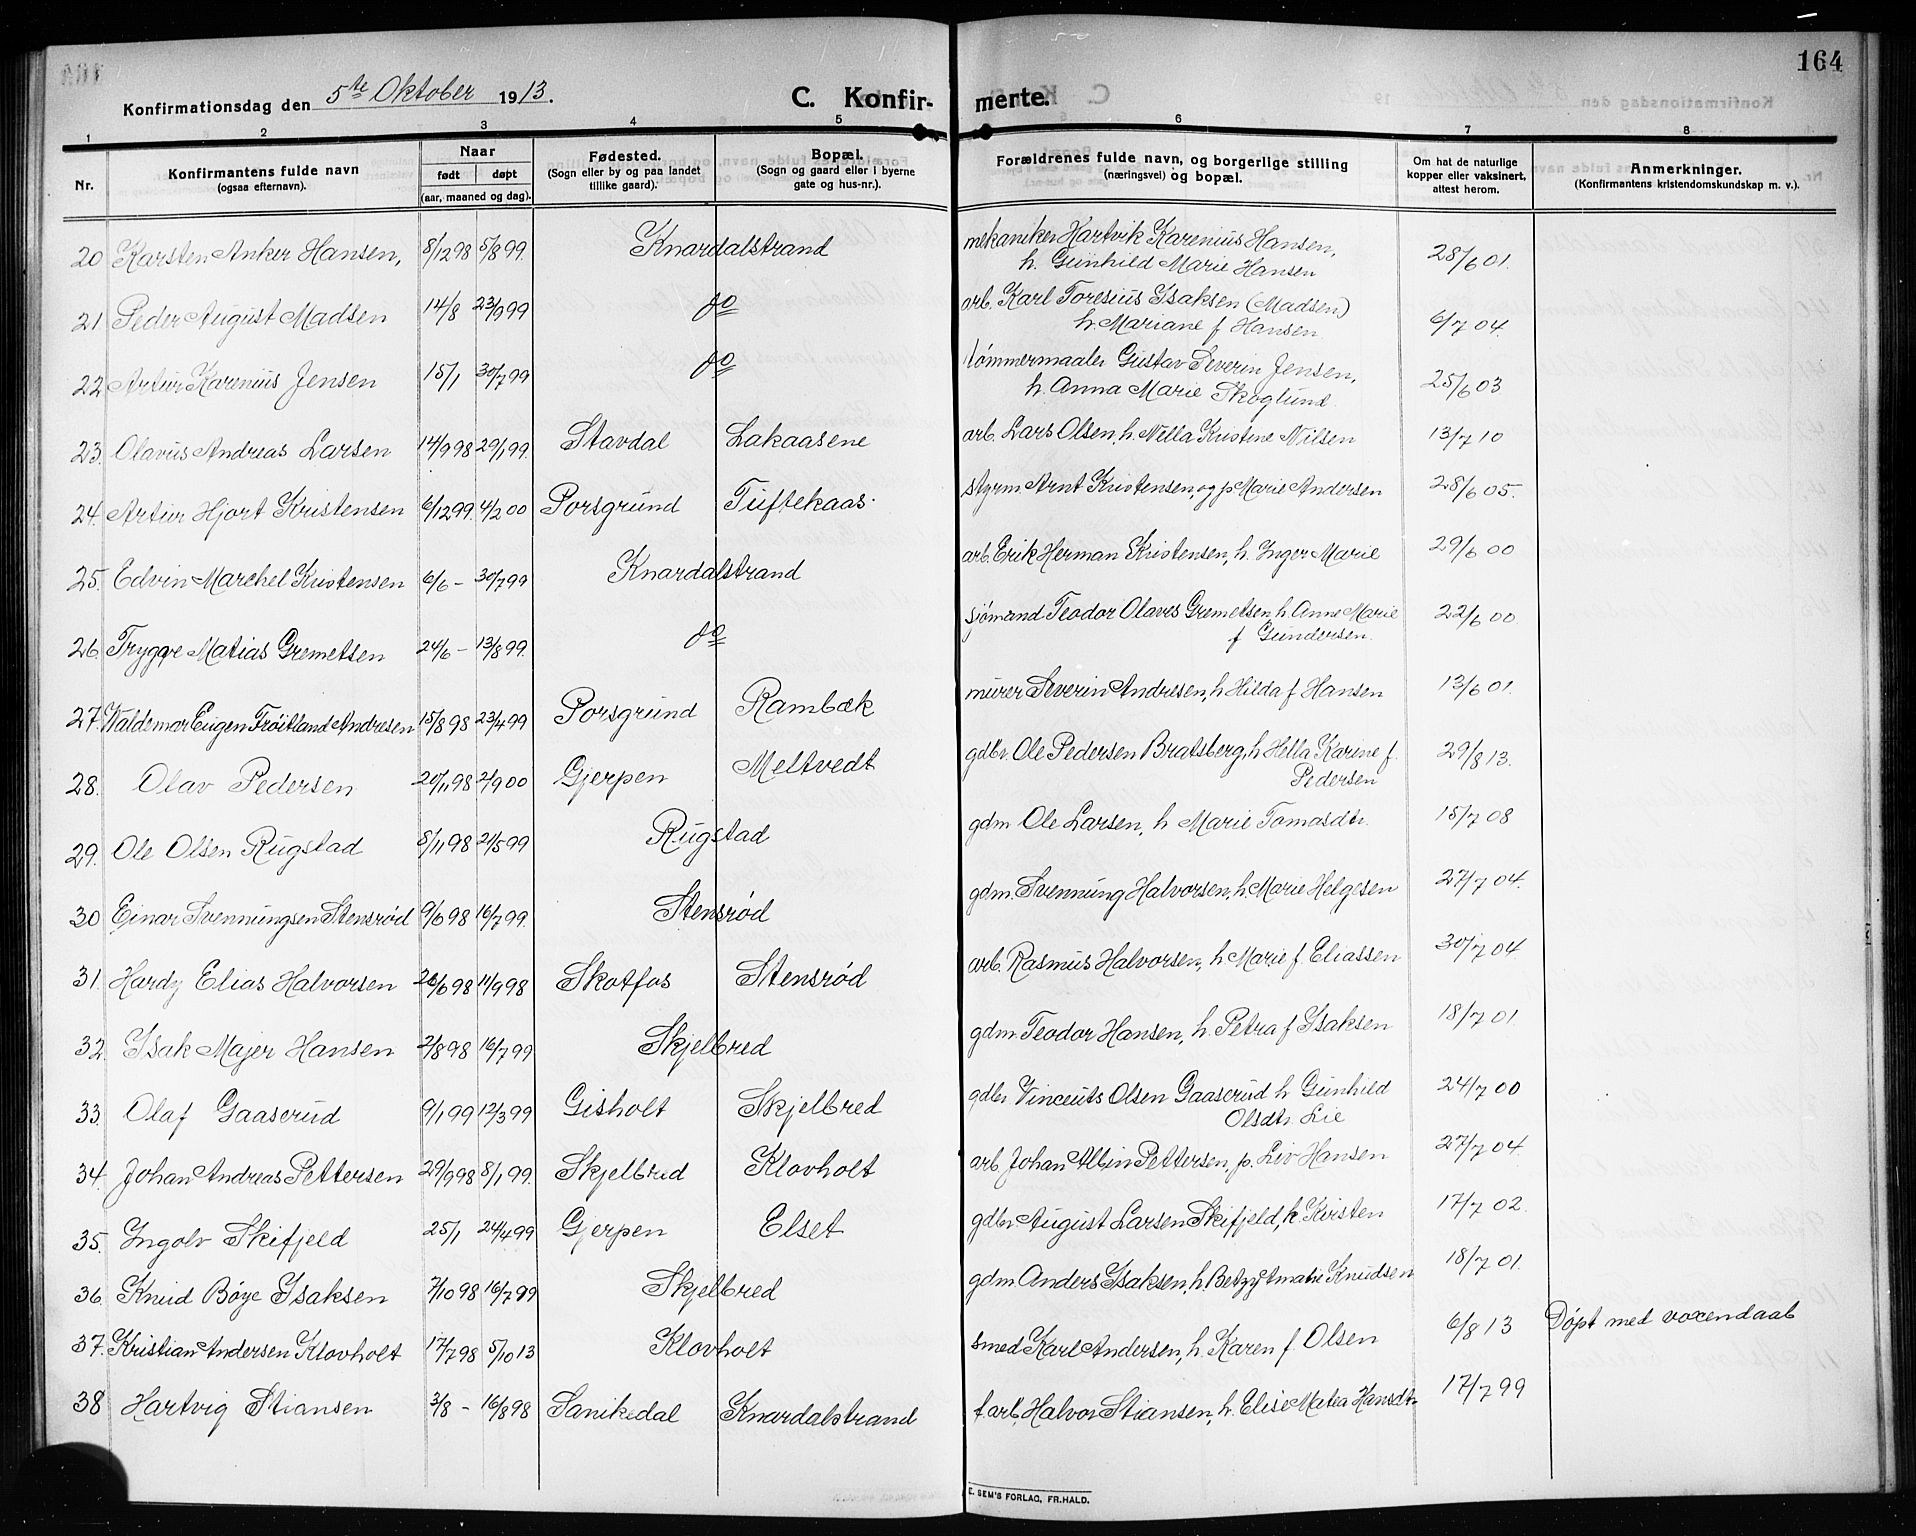 164
Konfirmationsdag den 5te Oktober 1913.
C. Konfir- merte.
1 2 3 4 5 6 7 8
Nr. Konfirmantens fulde navn (ogsaa efternavn). Naar født døpt (aar, maaned og dag). Fødested. (Sogn eller by og paa landet tillike gaard). Bopæl. (Sogn og gaard eller i byerne gate og hus-nr.). Forældrenes fulde navn, og borgerlige stilling (næringsvei) og bopæl. Om hat de naturlige kopper eller vaksinert, attest herom. Anmerkninger. (Konfirmantens kristendomskundskap m. v.).
20 Karsten Anker Hansen, 8/12 98 5/8 99. Knardalstrand mekaniker Hartvik Karenius Hansen, 28/6 01.
h. Gunhild Marie Hansen
21 Peder August Madsen 14/8 23/9 99 do arb. Karl Toresius Isaksen (Madsen) 6/7 04
h. Mariane f Hansen
22 Artur Karenius Jensen 15/1 30/7 99 do tømmermaaler Gustav Severin Jensen, 25/6 03
h. Anna Marie Skoglund
23. Olavus Andreas Larsen 14/9 98 29/1 99. Stavdal Lakaasene arb. Lars Olsen, h. Nella Kristine Nilsen 13/7 10
24. Artur Hjort Kristensen 6/12 99. 4/2 00 Porsgrund Tuftekaas. styrm. Arnt Kristensen, og p Marie Andersen 28/6 05.
25. Edvin Marchel Kristensen 6/6 - 30/7 99 Knardalstrand arb. Erik Herman Kristensen, h. Inger Marie 29/6 00
26. Trygve Matias Gremetsen 24/6 - 13/8 99. do sjømand Teodor Olaves Gremetsen, h. Anne Marie 22/6 00
f Gundersen.
27. Valdemar Eugen Trøitland Andresen 15/8 98 23/4 99 Porsgrund Rambæk murer Severin Andresen, h Hilda f Hansen 13/6 01.
28. Olav Pedersen 20/11 98 2/9 00 Gjerpen Meltvedt gdbr. Ole Pedersen Bratsberg, h Hella Karine f. 29/8 13.
Pedersen
29. Ole Olsen Rugstad 8/11 98 21/5 99 Rugstad gdm. Ole Larsen, h Marie Tomasdtr. 15/7 08
30 Einar Svenningsen Stensrød 9/6 98 16/7 99. Stensrød gdm. Svennung Halvorsen, h. Marie Helgesen 27/7 04.
31. Hardy Elias Halvorsen 26/6 98 11/9 98 Skotfos Stensrød arb. Rasmus Halvorsen, h Marie f. Eliassen 30/7 04.
32. Isak Majer Hansen 2/8 98 16/7 99 Skjelbred gdm. Teodor Hansen, h. Petra f Isaksen 18/7 01.
33. Olaf Gaaserud 9/1 99 12/3 99 Gisholt Skjelbred gdbr. Vincents Olsen Gaaserud h Gunhild 24/7 00
Olsdtr. Lie
34. Johan Andreas Pettersen 29/9 98 8/1 99. Skjelbred Klovholt arb. Johan Albin Pettersen, p. Liv Hansen 27/7 04.
35. Ingolv Skifjeld 25/1 24/4 99 Gjerpen Elset gdbr August Larsen Skifjeld, h. Kirsten 17/7 02.
36. Knud Bøye Isaksen 7/10 98 16/7 99 Skjelbred gdm. Anders Isaksen, h. Betzy Amalie Knudsen 18/7 01.
37. Kristian Andersen Klovholt 17/7 98 5/10 13 Klovholt smed Karl Andersen, h. Karen f. Olsen 6/8 13 Døpt med voxendaab
38 Hartvig Stiansen 3/8 - 16/8 98 Sanikedal Knardalstrand f. arb. Halvor Stiansen, h. Elise Matea Hansdtr 17/7 99
E. SEM'S FORLAG, FR.HALD.